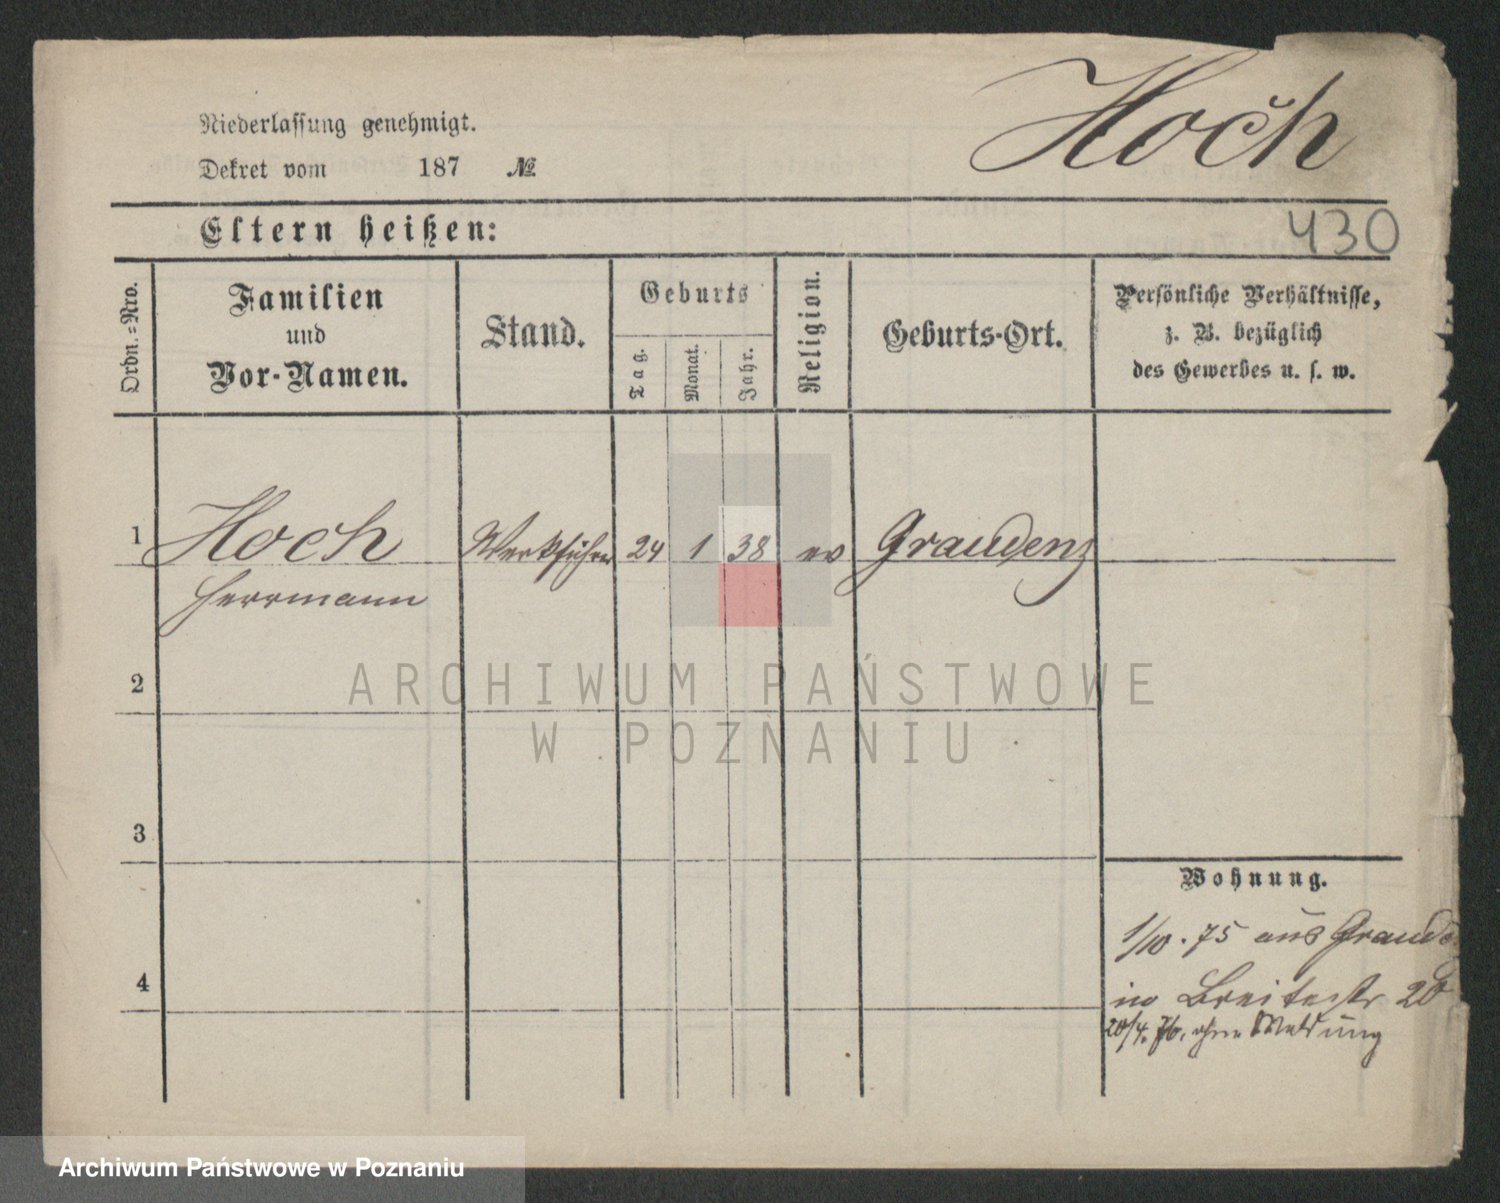 Hoch
Niederlassung genehmigt.
Dekret vom 187 №
430
Eltern heißen:
Ordn.=Nro.
Familien
und
Vor-Namen.
Stand.
Geburts
Tag.
Monat.
Jahr.
Religion.
Geburts-Ort.
Persönliche Verhältnisse,
z. B. bezüglich
des Gewerbes u. s. w.
1 Hoch Werkführer 24 1 38 ev Graudenz
Herrmann
2
ARCHIWUM PAŃSTWOWE
W POZNANIU
3
Wohnung.
1/10. 75 aus Graudenz
4
in Breitestr 20
20/4. 76. ohne Meldung
Archiwum Państwowe w Poznaniu